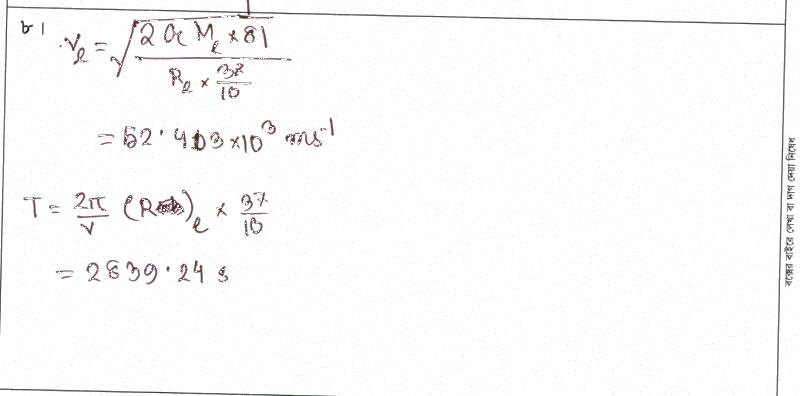 ৮। V_e = √(2 G M_e × 81 / R_e × 37/10)
= 52.413 × 10³ ms⁻¹
T = 2π/v (R)_e × 37/10
= 2839.24 s
বক্সের বাইরে লেখা বা দাগ দেয়া নিষেধ